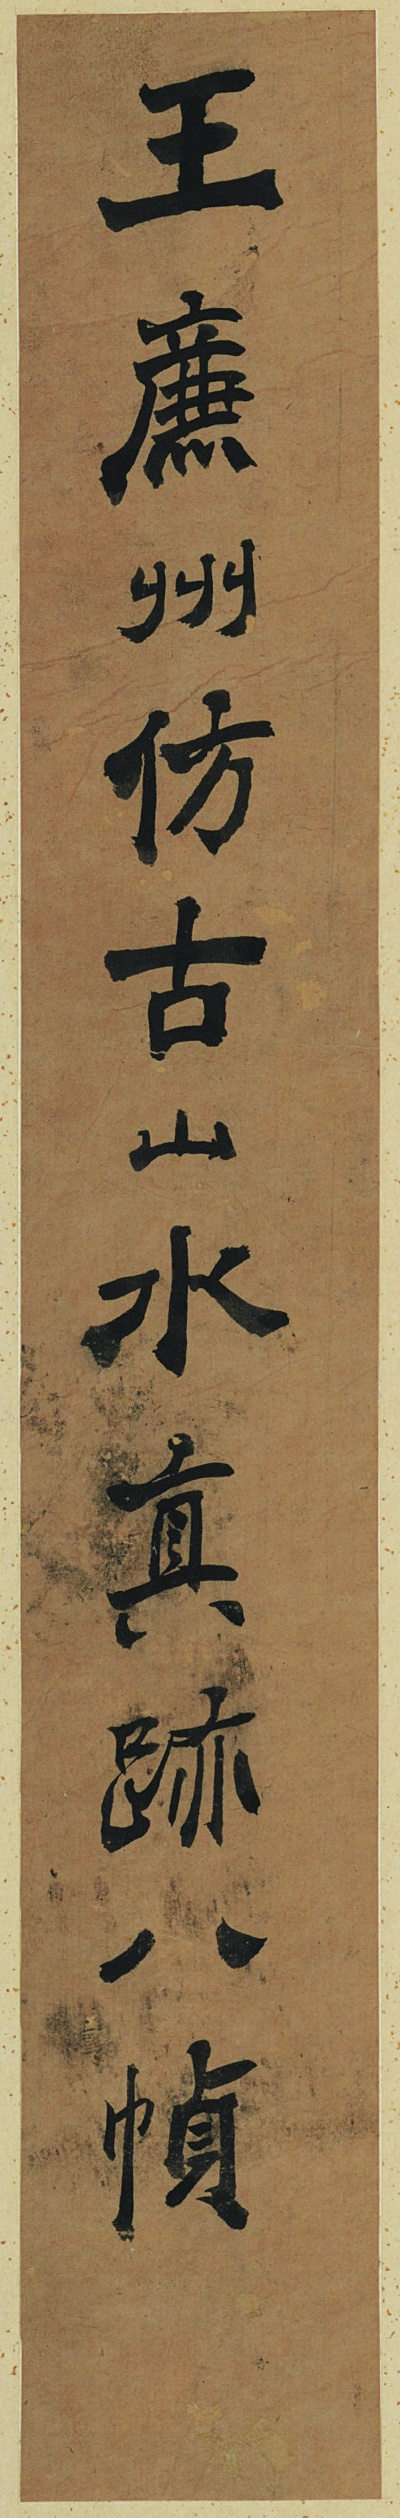 王廉州仿古山水真跡八幀